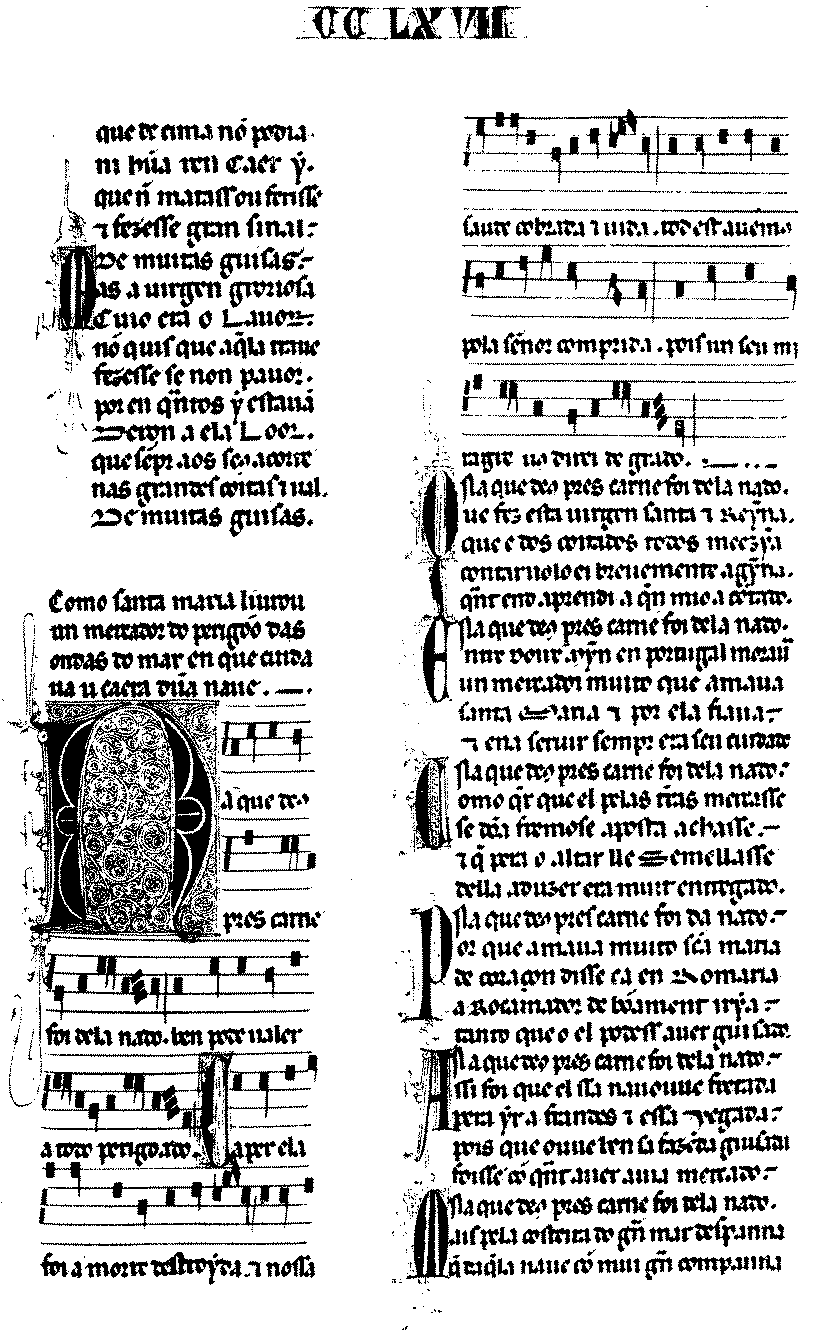 CC LXVII
que de cima nõ podia
ni hũa ren Caer ẏ.
que ñ matass ou feriss̃e
⁊ fezesse gran sinal:
De muitas guisas.
Mas a uirgen groriosa
Cuio era o Lauor:
nõ quis que aq̃la traue
fezesse se non pauor.
por en q̃ntos ẏ estauã
Deron a ela Loor.
que sẽpr aos seus acorre
nas grandes coitas ⁊ ual.
De muitas guisas.
Como santa maria liurou
un mercador do perigóo das
ondas do mar en que cuida
ua u caera dũa naue.
A que deus
pres carne
foi dela nado. ben pode ualer
a todo perigoado. Ca per ela
foi a morte destroyda. ⁊ nossa
saude cobrada ⁊ uida. tod est auemos
pola señor comprida. pois un seu mi
ragre uos direi de grado.
A que deus pres carne foi dela nado.
Que fez esta uirgen santa ⁊ Reẏna.
que e dos coitados todos meezỹa
contaruolo ei breuemente agỹna.
q̃nt end aprendi a q̃n mio a cõtado.
A que deus pres carne foi dela nado.
Entre Doir auỹn en portugal morauã
un mercador muito que amaua
santa Maria ⁊ por ela fiaua
⁊ ena seruir sempr era seu cuidado
A que deus pres carne foi dela nado.
Como q̃r que el pelas t̃ras mercasse
se dõa fremosa aposta achasse.
⁊ q̃ pera o altar lle Semellasse
della aduzer era muit entregado.
A que deus pres carne foi da nado.
Por que amaua muito sc̃a maria
de coraçon disse ca en Romaria
a Rocamador de bõament irỹa
tanto que o el podess auer guisado.
A que deus pres carne foi dela nado.
Assi foi que el ssa naue ouue fretada
pera ẏr a frandes ⁊ essa vegada
pois que ouue ben sa fazẽda guisada
foisse cõ q̃nt auer auia mercado.
A que deus pres carne foi dela nado.
Mais pela costeira do gñ mar despanna
q̃ daq̃la naue cõ mui gñ companna